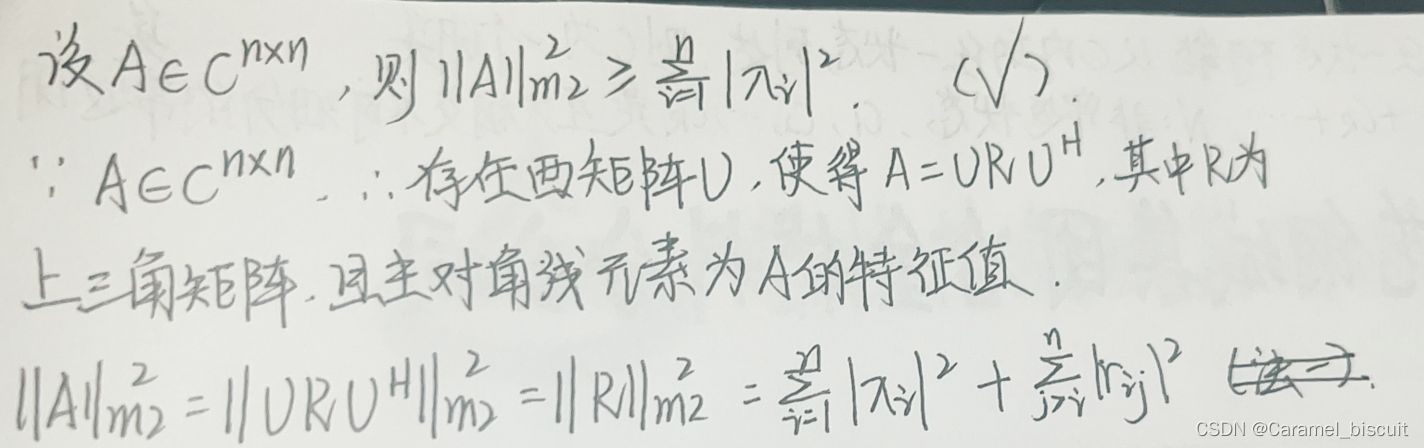 设 A∈C^{n×n}, 则 ||A||_{m2}^2 ≥ \sum_{i=1}^{n} |λ_i|^2. (√).
∵ A∈C^{n×n}. ∴ 存在酉矩阵U, 使得 A=URU^H, 其中R为
上三角矩阵. 且主对角线元素为A的特征值.
||A||_{m2}^2 = ||URU^H||_{m2}^2 = ||R||_{m2}^2 = \sum_{i=1}^{n} |λ_i|^2 + \sum_{j>i}^{n} |r_{ij}|^2
CSDN @Caramel_biscuit